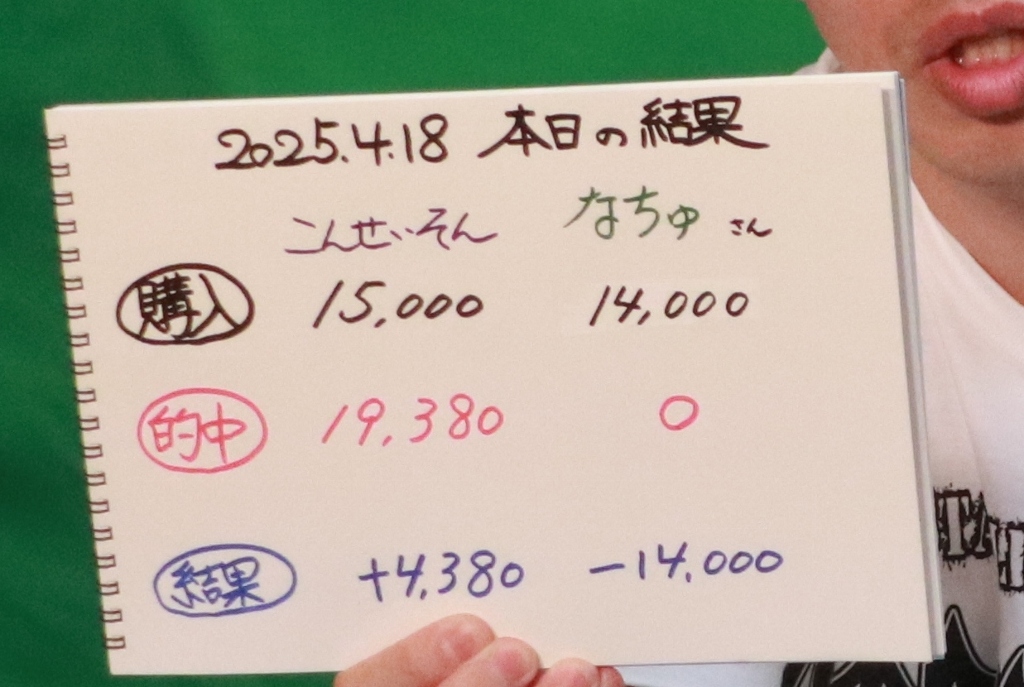 2025.4.18 本日の結果
こんせいそん なちゅ さん
購入 15,000 14,000
的中 19,380 0
結果 +4,380 -14,000